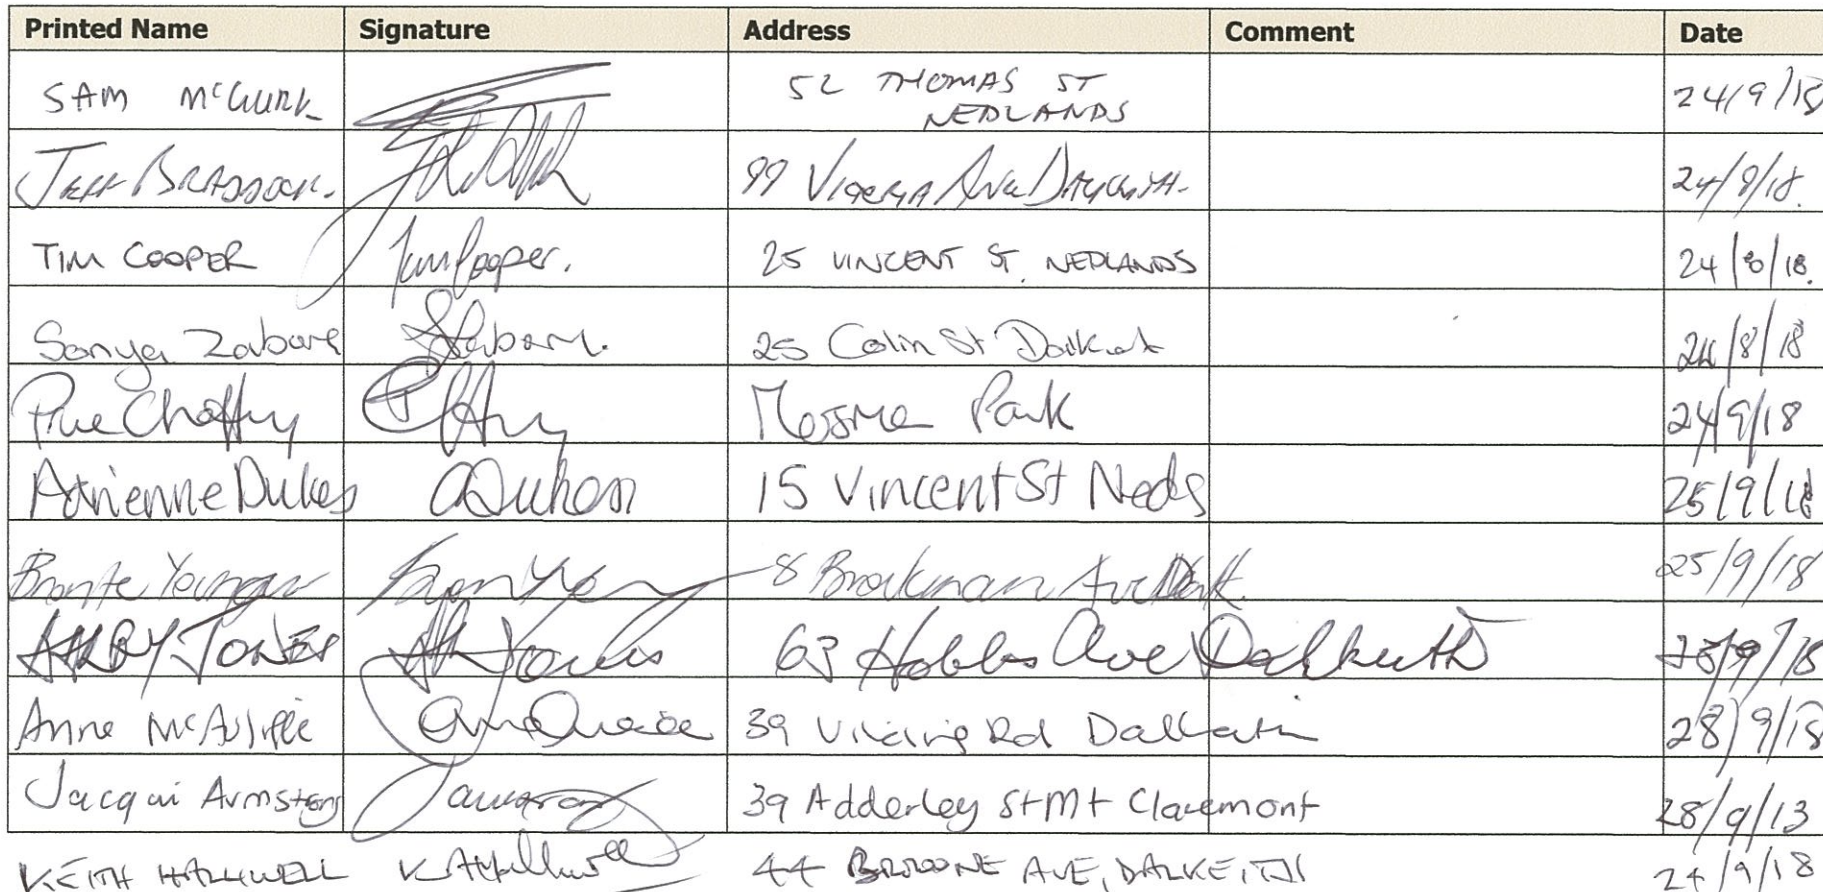 Printed Name Signature Address Comment Date
SAM McGURK 52 THOMAS ST
NEDLANDS 24/9/18
JEFF BRADDOCK. 99 VICTORIA AVE DALKEITH. 24/9/18.
TIM COOPER Tim Cooper. 25 VINCENT ST NEDLANDS 24/8/18.
Sonya Zabare 25 Colin St Dalkeit 24/8/18
Prue Chaffry Mosman Park 24/9/18
Adrienne Dukes ADukes 15 Vincent St Neds 25/9/18
Bronte Younger 8 Brockman Ave Dalk. 25/9/18
JONES Jones 63 Hobbs Ave Dalkeith /9/18
Anne McAuliffe 39 Viking Rd Dalkeith 28/9/18
Jacqui Armstrong 39 Adderley St Mt Claremont 28/9/13
KEITH HALLIWELL K Halliwell 44 BROOME AVE, DALKEITH 24/9/18